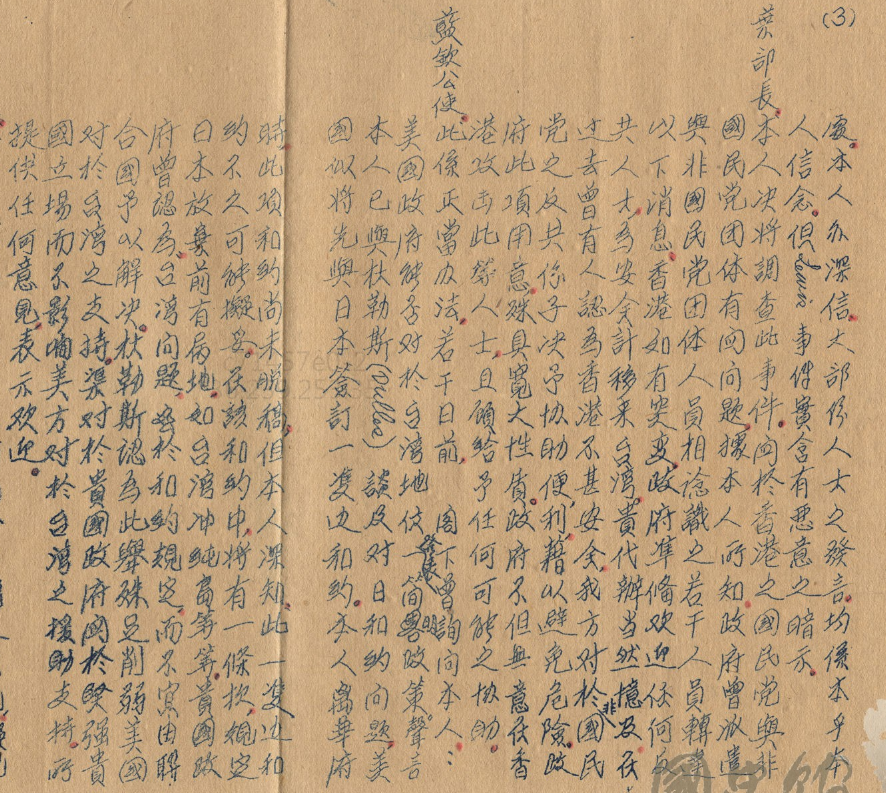 (3)
處本人亦深信大部份人士之發言均係本乎本
人信念但Lewis事件實含有惡意之暗示
葉部長
本人決將調查此事件關於香港之國民党與非
國民党团体有何问题據本人所知政府曾派遣
與非國民党团体人員相諗識之若干人員轉達
以下消息香港如有突变政府準備欢迎任何反
共人士为安全計移來台湾貴代辦当然憶及在
过去曾有人認為香港不甚安全我方对於非國民
党之反共份子决予协助便利藉以避免危險政
府此項用意殊具寬大性质政府不但無意在香
港攻击此等人士且願給予任何可能之协助
藍欽公使
此係正當办法若干日前 阁下曾詢问本人：
美國政府能否对於台湾地位發表一简畧明政策聲言
本人已與杜勒斯(Dulles)談及对日和約问题美
國似将先與日本簽訂一双边和約本人离華府
時此項和約尚未脱稿但本人深知此一双边和
約不之可能擬妥在該和約中将有一條欵規定
日本放棄前有属地如台湾冲绳島等等貴國政
府曾認為台湾问题 於和約規定而不宜由聯
合國予以解决杜勒斯認為此舉殊足削弱美國
对於台湾之支持渠对於貴國政府関於堅强貴
國立場而不影响美方对於台湾之援助支持所
提供任何意見表示欢迎